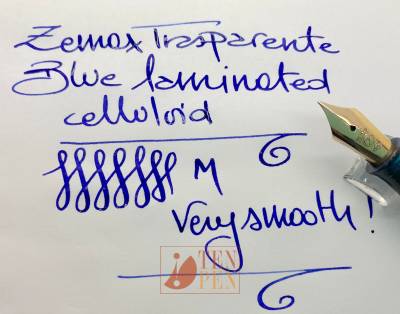 Zemax Trasparente
Blue laminated
celluloid
M
Very smooth!
TEN
PEN